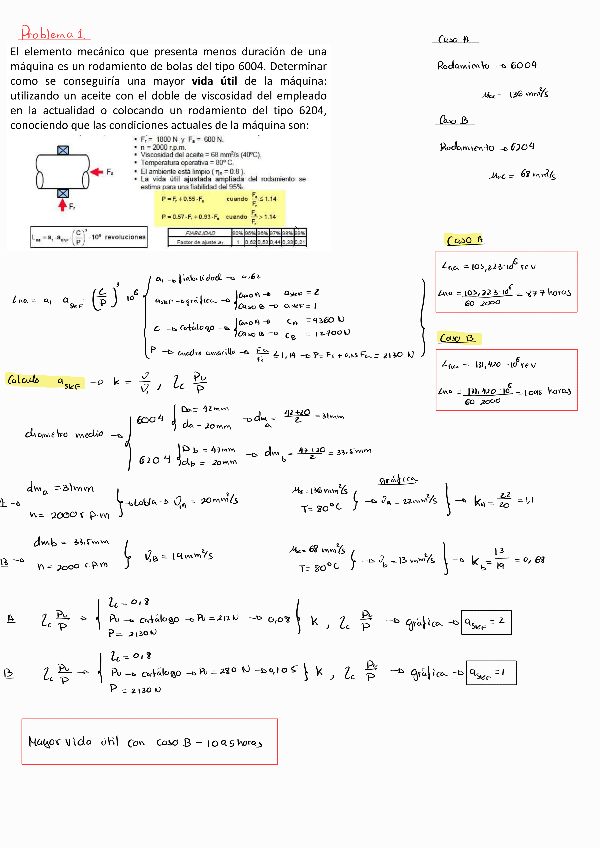 Problema 1.
El elemento mecánico que presenta menos duración de una
máquina es un rodamiento de bolas del tipo 6004. Determinar
como se conseguiría una mayor vida útil de la máquina:
utilizando un aceite con el doble de viscosidad del empleado
en la actualidad o colocando un rodamiento del tipo 6204,
conociendo que las condiciones actuales de la máquina son:
• Fr = 1800 N y Fa = 600 N.
• n = 2000 r.p.m.
• Viscosidad del aceite = 68 mm²/s (40ºC).
• Temperatura operativa = 80º C.
• El ambiente está limpio ( ηc = 0.8 ).
• La vida útil ajustada ampliada del rodamiento se
estima para una fiabilidad del 95%.
P = Fr + 0.55·Fa cuando Fa/Fr ≤ 1.14
P = 0.57·Fr + 0.93·Fa cuando Fa/Fr > 1.14
Lna = a1 aSKF (C/P)³ 10⁶ revoluciones
FIABILIDAD 90% 95% 96% 97% 98% 99%
Factor de ajuste a1 1 0,62 0,53 0,44 0,33 0,21
Caso A
Rodamiento → 6004
μc = 136 mm²/s
Caso B
Rodamiento → 6204
μc = 68 mm²/s
Caso A
Lna = 105,223·10⁶ rev
Lna = 105,223·10⁶ / 60·2000 = 877 horas
Caso B
Lna = 131,420·10⁶ rev
Lna = 131,420·10⁶ / 60·2000 = 1095 horas
Lna = a1 aSKF · (C/P)³ 10⁶
a1 → fiabilidad → 0,62
aSKF → gráfica → Caso A → aSKF = 2
Caso B → aSKF = 1
C → catálogo → Caso A → CA = 9360 N
Caso B → CB = 12700 N
P → cuadro amarillo → Fa/Fr ≤ 1,14 → P = Fr + 0,55 Fa = 2130 N
Calculo aSKF → k = ν/ν1 , ηc Pu/P
diametro medio → 6004 Da = 42mm
da = 20mm → dma = 42+20/2 = 31mm
6204 Db = 47mm
db = 20mm → dmb = 47+20/2 = 33.5mm
dma = 31mm
n = 2000 r.p.m → tabla → ν1A = 20 mm²/s
μc = 136 mm²/s
T = 80ºC gráfica → νA = 22 mm²/s → KA = 22/20 = 1,1
dmb = 33.5mm
n = 2000 r.p.m ν1B = 19 mm²/s
μc = 68 mm²/s
T = 80ºC → νb = 13 mm²/s → Kb = 13/19 = 0,68
A ηc Pu/P → ηc = 0,8
Pu → catálogo → Pu = 212 N → 0,08 K, ηc Pu/P → gráfica → aSKF = 2
P = 2130 N
B ηc Pu/P → ηc = 0,8
Pu → catálogo → Pu = 280 N → 0,105 K, ηc Pu/P → gráfica → aSKF = 1
P = 2130 N
Mayor vida útil con caso B - 1095 horas